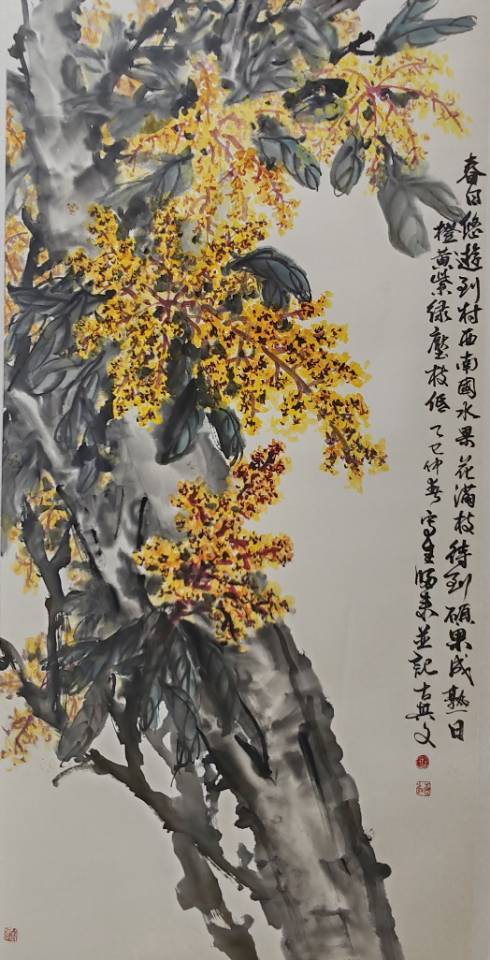 春日悠遊到村西南國水果花滿枝待到碩果成熟日
橙黃紫绿壓枝低乙巳仲春寫生歸來並記古興文